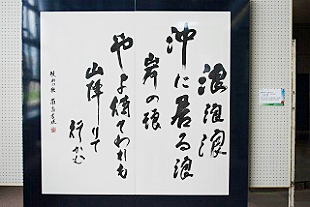 浪浪浪
沖に居る浪
岸の浪
やよ待てわれも
山降りて
行かむ